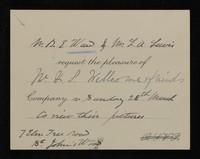 Mr B. I Ward & Mr L. A. Lewis
request the pleasure of
Mr H. S. Wellcome &
Company on Sunday 28th March
to view their pictures
7 Elm Tree Road
St John's Wood